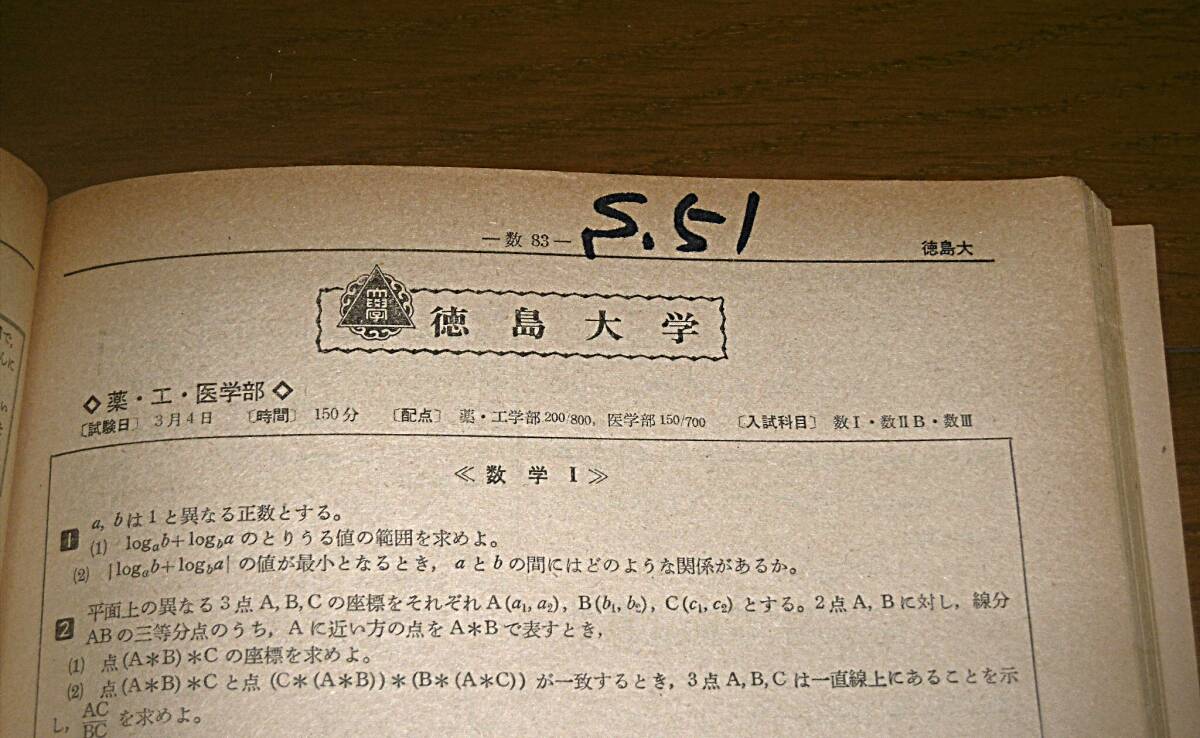 S.51
— 数 83 —
徳島大
徳 島 大 学
◇ 薬・工・医学部 ◇
〔試験日〕 3月4日 〔時間〕 150分 〔配点〕 薬・工学部 200/800, 医学部 150/700 〔入試科目〕 数Ⅰ・数ⅡB・数Ⅲ
≪ 数 学 Ⅰ ≫
1 a, bは1と異なる正数とする。
(1) logₐb+log_b aのとりうる値の範囲を求めよ。
(2) |logₐb+log_b a| の値が最小となるとき, aとbの間にはどのような関係があるか。
2 平面上の異なる3点A, B, Cの座標をそれぞれA(a₁, a₂), B(b₁, b₂), C(c₁, c₂) とする。2点A, Bに対し, 線分
ABの三等分点のうち, Aに近い方の点をA*Bで表すとき,
(1) 点(A*B)*Cの座標を求めよ。
(2) 点(A*B)*Cと点 (C*(A*B))*(B*(A*C)) が一致するとき, 3点A, B, Cは一直線上にあることを示
し, AC/BC を求めよ。